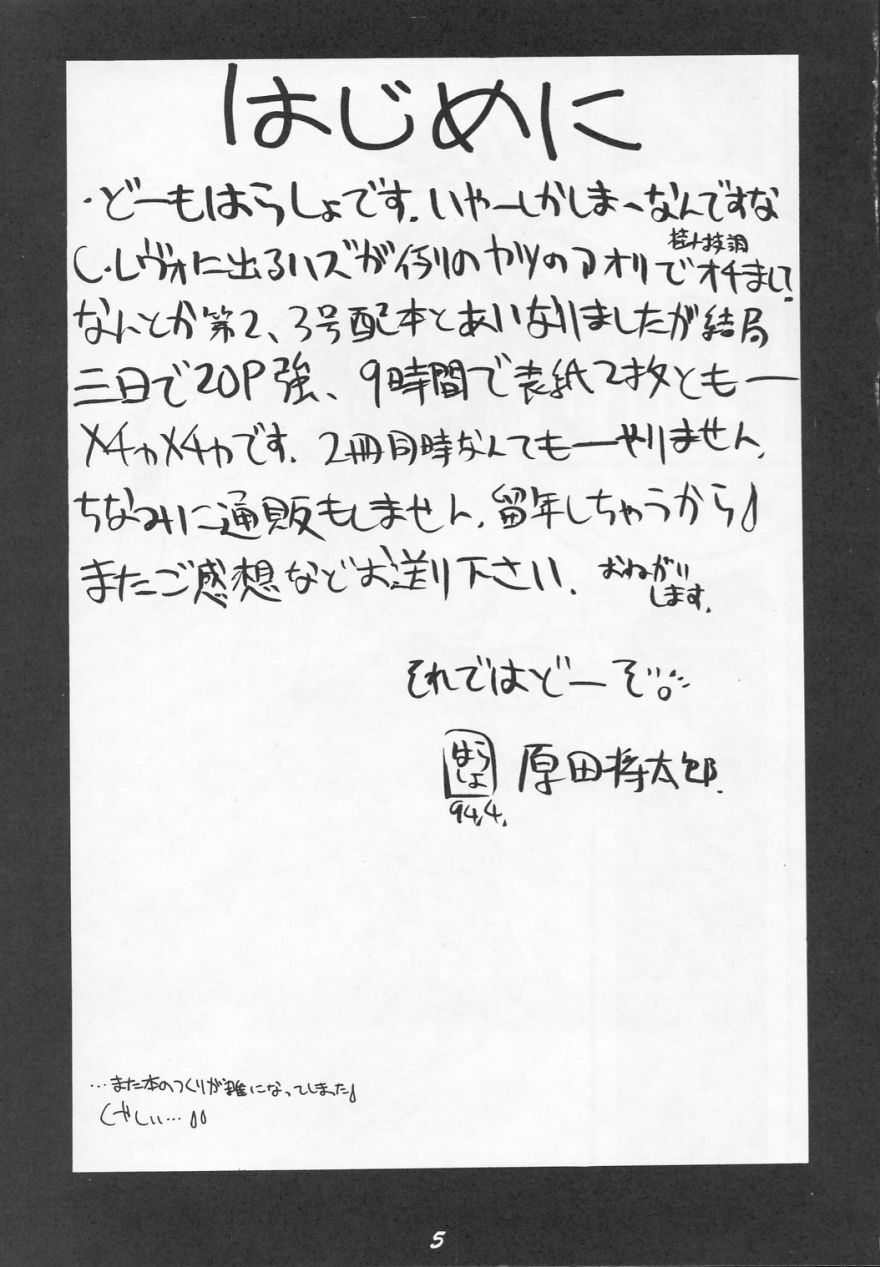 はじめに
・どーもはらしょです。いやーしかしまーなんですな
C・レヴォに出るハズが例のヤツのアオリでオチまして
なんとか第2、3号配本とあいなりましたが結局
三日で20P強、9時間で表紙2枚ともー
メチャメチャです。2冊同時なんてもーやりません。
ちなみに通販もしません。留年しちゃうから♪
またご感想などお送り下さい。おねがい
します。
それではどーぞ。
はらしょ 原田将太郎.
94,4,
…また本のつくりが雑になってしまった♪
くやしい…♪♪
5